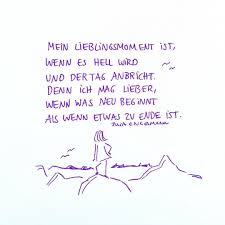 MEIN LIEBLINGSMOMENT IST,
WENN ES HELL WIRD
UND DER TAG ANBRICHT.
DENN ICH MAG LIEBER,
WENN WAS NEU BEGINNT
ALS WENN ETWAS ZU ENDE IST.
JULIA ENGELMANN